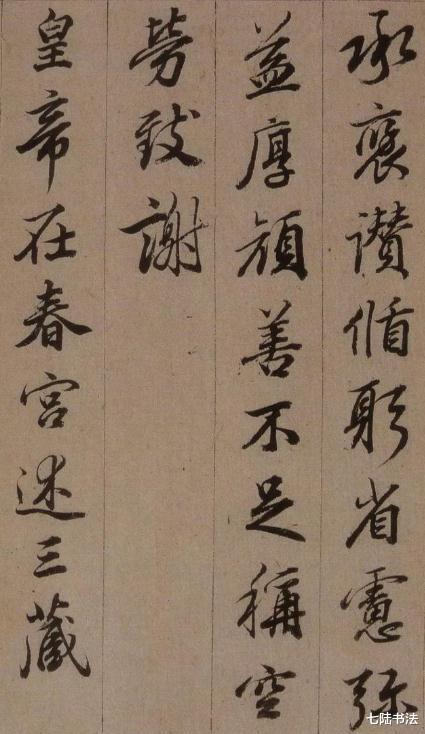 承褒讃循躬省慮弥
益厚顔善不足稱空
勞致謝
皇帝在春宮述三藏
七陆书法